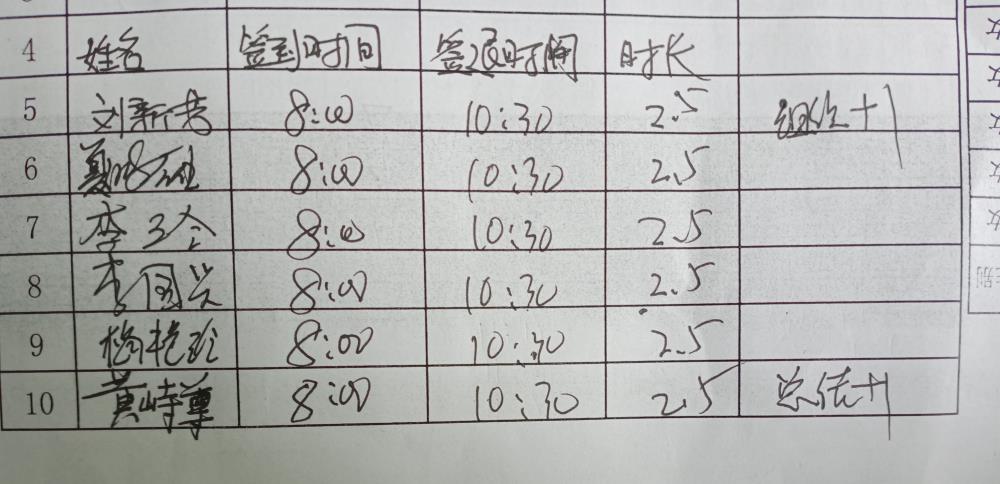 4 姓名 签到时间 签退时间 时长
5 刘新营 8:00 10:30 2.5 组织+1
6 夏 8:00 10:30 2.5
7 李 8:00 10:30 2.5
8 李国兴 8:00 10:30 2.5
9 杨艳玲 8:00 10:30 2.5
10 黄峙尊 8:00 10:30 2.5 总结+1
女
女
女
女
女
别